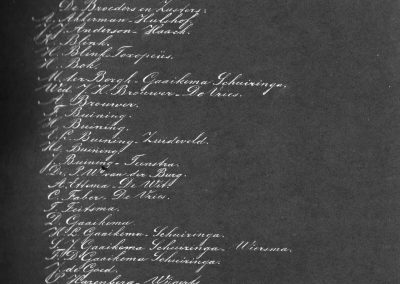 De Broeders en Zusters:
A. Akkerman-Hulshof.
J. Anderson-Haack.
Blink.
H. Blink-Toxopeüs.
H. Bok.
M. ter Borgh-Gaaikema Schuiringa.
Wed. J. H. Brouwer-De Vries.
A. Brouwer.
Buining.
Buining.
Buining-Zuideveld.
Hs. Buining.
J. Buining-Teenstra.
Dr. P. W. van der Burg.
A. Ettsma-De Wit.
C. Faber-De Vries.
T. Feitsma.
D. Gaaikema.
Gaaikema-Schuiringa.
Gaaikema Schuiringa-Wiersma.
Gaaikema Schuiringa.
de Goed.
Harenberg-Wigerts